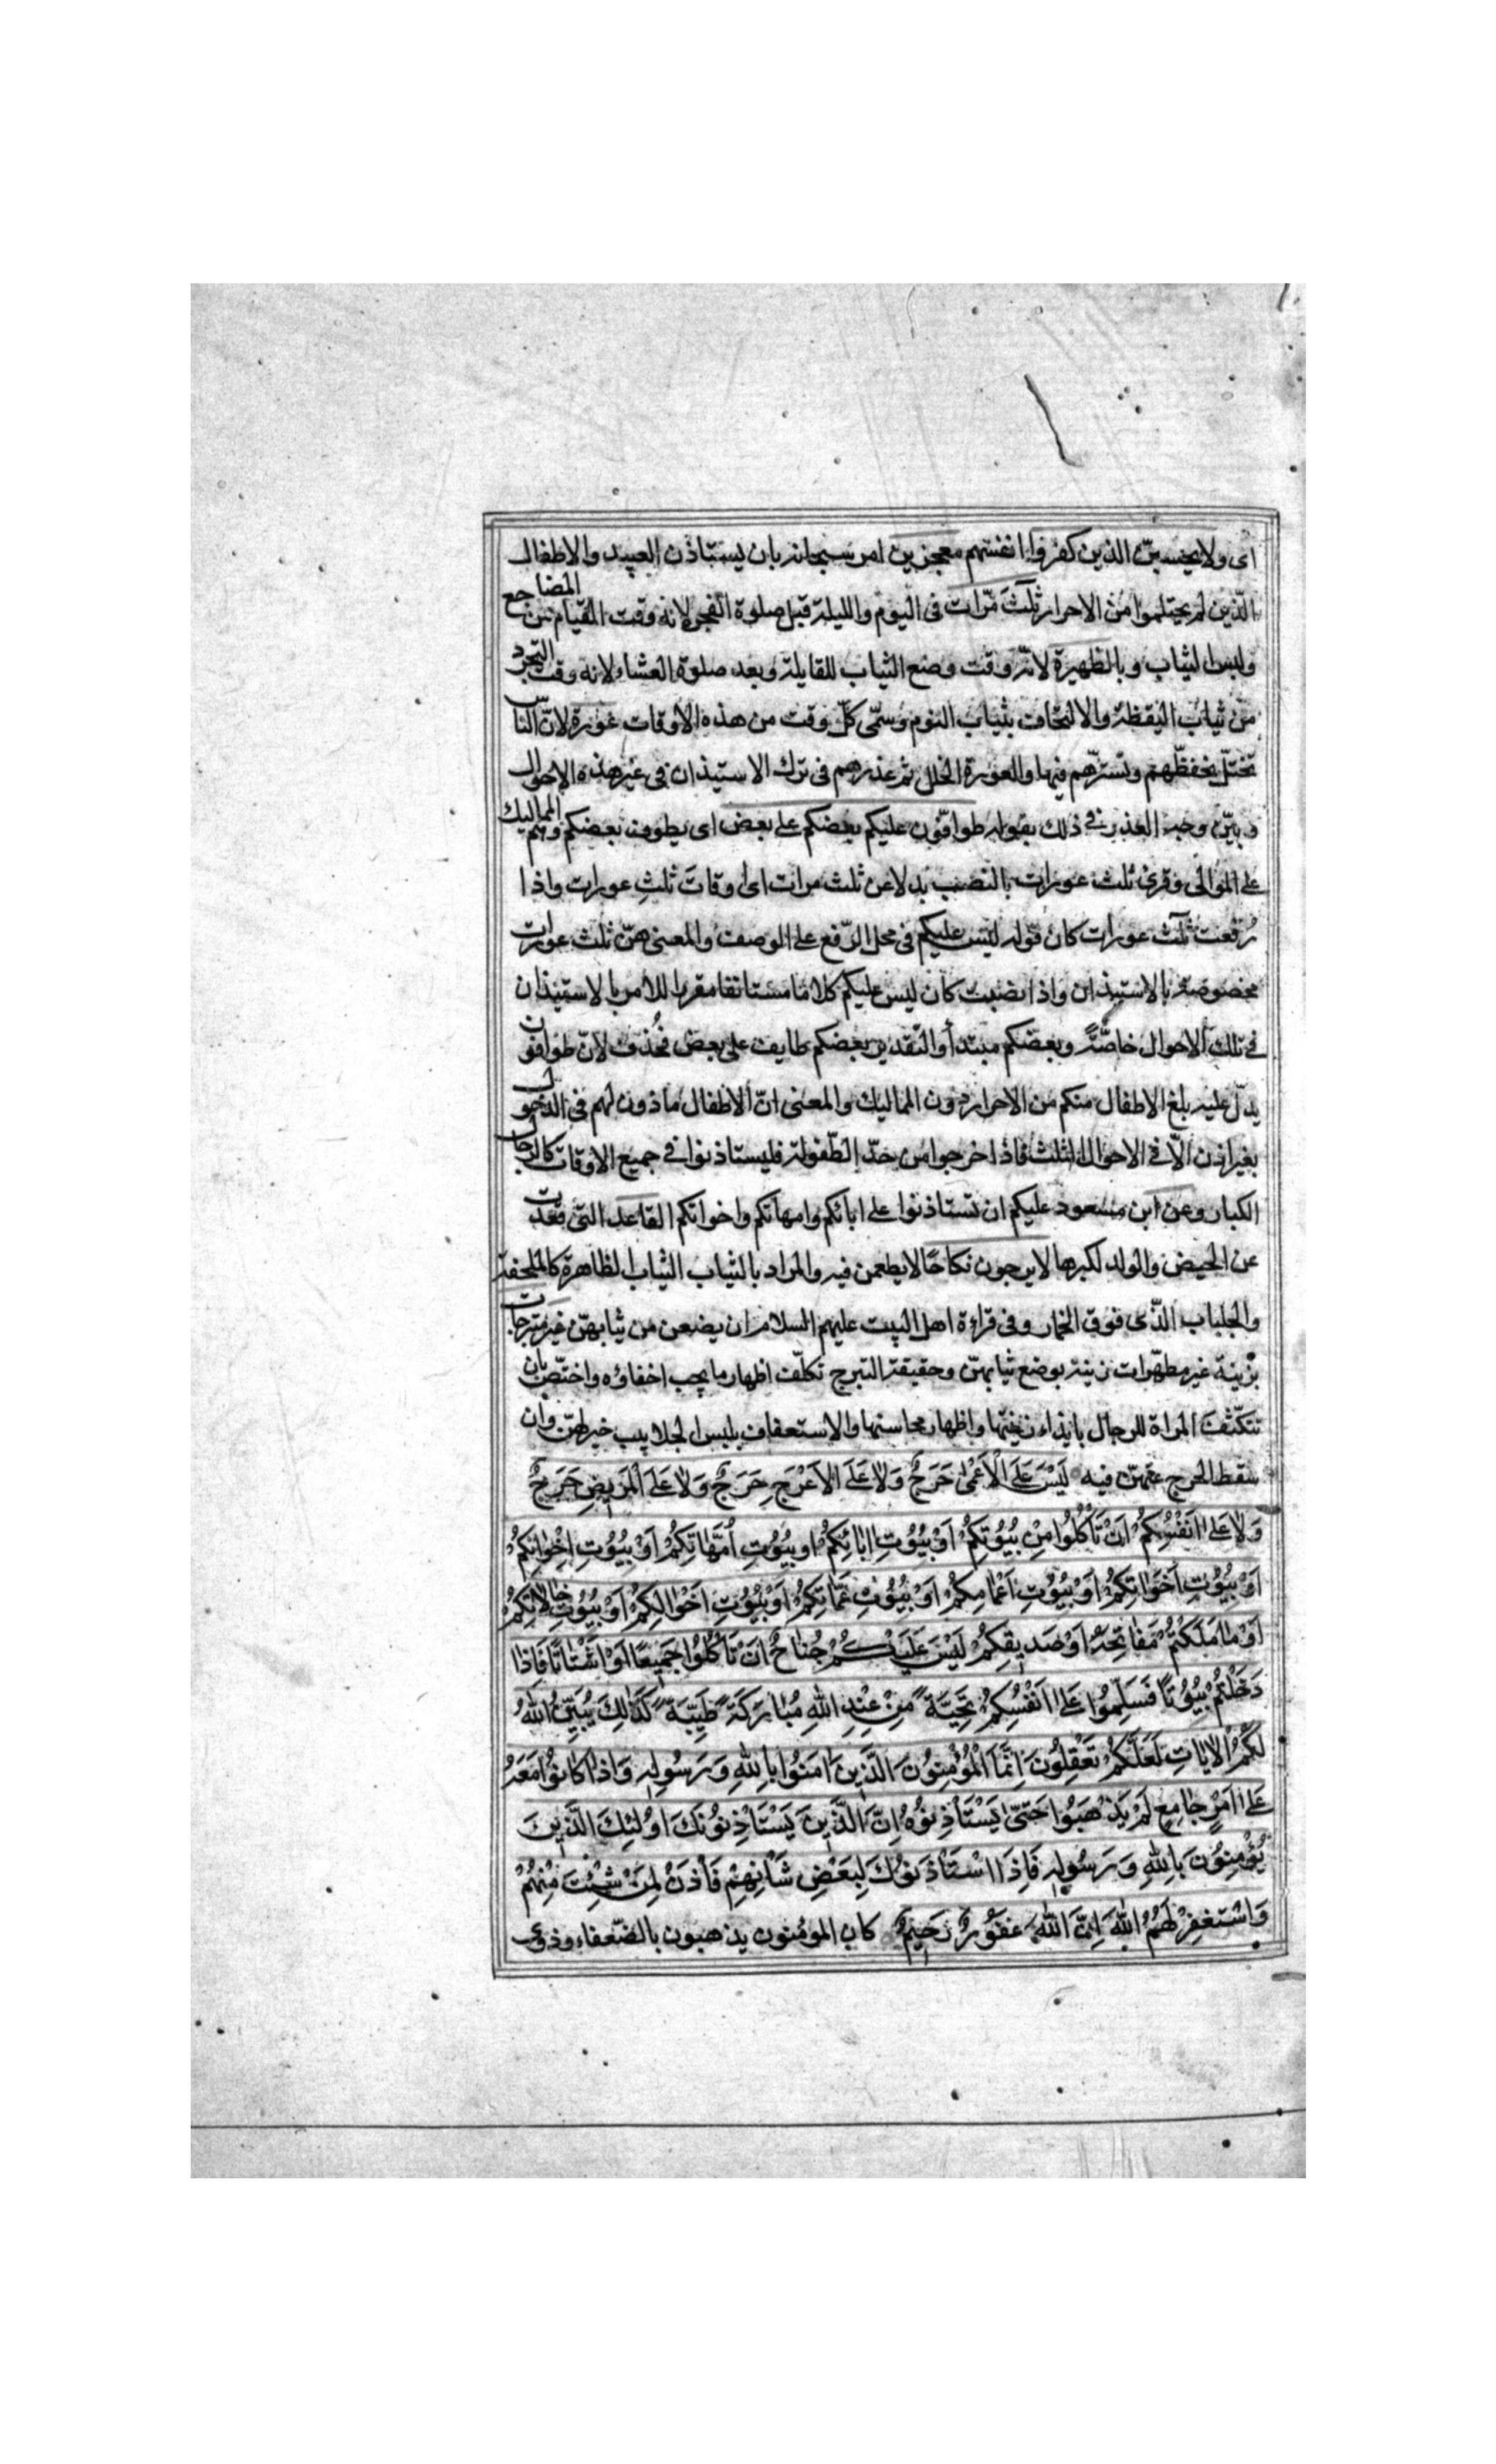 اى ولا يحسبنّ الذين كفروا انفسهم معجزين امر سبحانه بان يستاذن العبيد والاطفال
الّذين لم يحتلموا من الاحرار ثلث مرّات فى اليوم والليلة قبل صلوة الفجر لانه وقت القيام من المضاجع
ولبس الثياب وبالظهيرة لانّه وقت وضع الثياب للقايلة وبعد صلوة العشاء لانه وقت التجرد
من ثياب اليقظة والالتحاف بثياب النوم وسمّى كلّ وقت من هذه الاوقات عورة لانّ الناس
تختلّ تحفظهم وتسترهم فيها والعورة الخلل ثم عذرهم فى ترك الاستيذان فى غير هذه الاحوال
وبيّن وجه العذر فى ذلك بقوله طوافون عليكم بعضكم على بعض اى يطوف بعضكم وهم المماليك
على الموالى وقرئ ثلث عورات بالنصب بدلا عن ثلث مرات اى اوقات ثلث عورات واذا
رفعت ثلث عورات كان قوله ليس عليكم فى محل الرّفع على الوصف والمعنى هنّ ثلث عورات
مخصوصة بالاستيذان واذا نصبت كان ليس عليكم كلاما مستانفا مقررا للامر بالاستيذان
فى تلك الاحوال خاصّةً وبعضكم مبتدأ والتقدير بعضكم طايف على بعض فحُذف لانّ طوافون
يدلّ عليه بلغ الاطفال منكم من الاحرار دون المماليك والمعنى انّ الاطفال ماذون لهم فى الدخول
بغير اذن الّا فى الاحوال الثلث فاذا خرجوا من حدّ الطّفولة فليستاذنوا فى جميع الاوقات كالرجال
الكبار وعن ابن مسعود عليكم ان تستاذنوا على ابائكم وامهاتكم واخواتكم القاعد التى قعدت
عن الحيض والولد لكبرها لا يرجون نكاحًا لا يطمعن فيه والمراد بالثياب الثياب الظاهرة كالملحفة
والجلباب الّذى فوق الخمار وفى قراءة اهل البيت عليهم السلام ان يضعن من ثيابهنّ غير متبرجات
بزينة غير مظهرات زينة بوضع ثيابهنّ وحقيقة التبرج تكلّف اظهار ما يجب اخفاؤه واختصّ بان
تتكشف المراة للرجال بابداء زينتها واظهار محاسنها والاستعفاف بلبس الجلابيب خير لهنّ وان
سقط الحرج عنهنّ فيه لَيْسَ عَلَى الْاَعْمٰى حَرَجٌ وَلَا عَلَى الْاَعْرَجِ حَرَجٌ وَلَا عَلَى الْمَرِيضِ حَرَجٌ
وَلَا عَلٰى اَنْفُسِكُمْ اَنْ تَأْكُلُوا مِنْ بُيُوتِكُمْ اَوْ بُيُوتِ اٰبَائِكُمْ اَوْ بُيُوتِ اُمَّهَاتِكُمْ اَوْ بُيُوتِ اِخْوَانِكُمْ
اَوْ بُيُوتِ اَخَوَاتِكُمْ اَوْ بُيُوتِ اَعْمَامِكُمْ اَوْ بُيُوتِ عَمَّاتِكُمْ اَوْ بُيُوتِ اَخْوَالِكُمْ اَوْ بُيُوتِ خَالَاتِكُمْ
اَوْ مَا مَلَكْتُمْ مَفَاتِحَهُ اَوْ صَدِيقِكُمْ لَيْسَ عَلَيْكُمْ جُنَاحٌ اَنْ تَأْكُلُوا جَمِيعًا اَوْ اَشْتَاتًا فَاِذَا
دَخَلْتُمْ بُيُوتًا فَسَلِّمُوا عَلٰى اَنْفُسِكُمْ تَحِيَّةً مِنْ عِنْدِ اللهِ مُبَارَكَةً طَيِّبَةً كَذٰلِكَ يُبَيِّنُ اللهُ
لَكُمُ الْاٰيَاتِ لَعَلَّكُمْ تَعْقِلُونَ اِنَّمَا الْمُؤْمِنُونَ الَّذِينَ اٰمَنُوا بِاللهِ وَرَسُولِهِ وَاِذَا كَانُوا مَعَهُ
عَلٰى اَمْرٍ جَامِعٍ لَمْ يَذْهَبُوا حَتّٰى يَسْتَأْذِنُوهُ اِنَّ الَّذِينَ يَسْتَأْذِنُونَكَ اُولٰئِكَ الَّذِينَ
يُؤْمِنُونَ بِاللهِ وَرَسُولِهِ فَاِذَا اسْتَأْذَنُوكَ لِبَعْضِ شَأْنِهِمْ فَأْذَنْ لِمَنْ شِئْتَ مِنْهُمْ
وَاسْتَغْفِرْ لَهُمُ اللهَ اِنَّ اللهَ غَفُورٌ رَحِيمٌ كان المؤمنون يذهبون بالضّعفاء وذوى